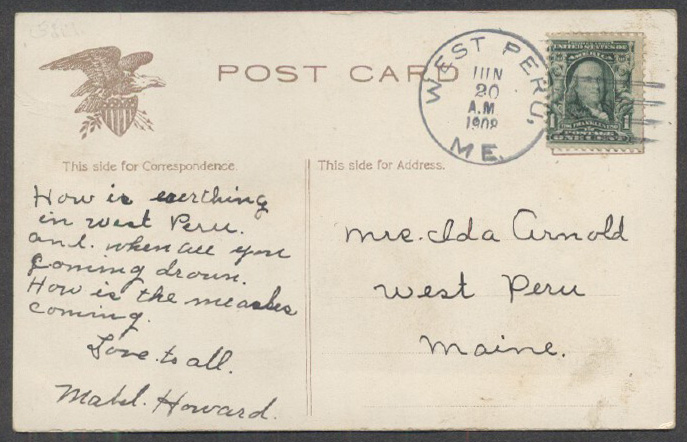 POST CARD
WEST PERU,
JUN
20
A.M
1908
ME.
UNITED STATES OF
1
1
POSTAGE
ONE CENT
This side for Correspondence.
How is eerthing
in West Peru.
and. when are you
Coming down.
How is the measles
coming.
Love to all.
Mabel. Howard.
This side for Address.
Mrs. Ida Arnold
West Peru
Maine.